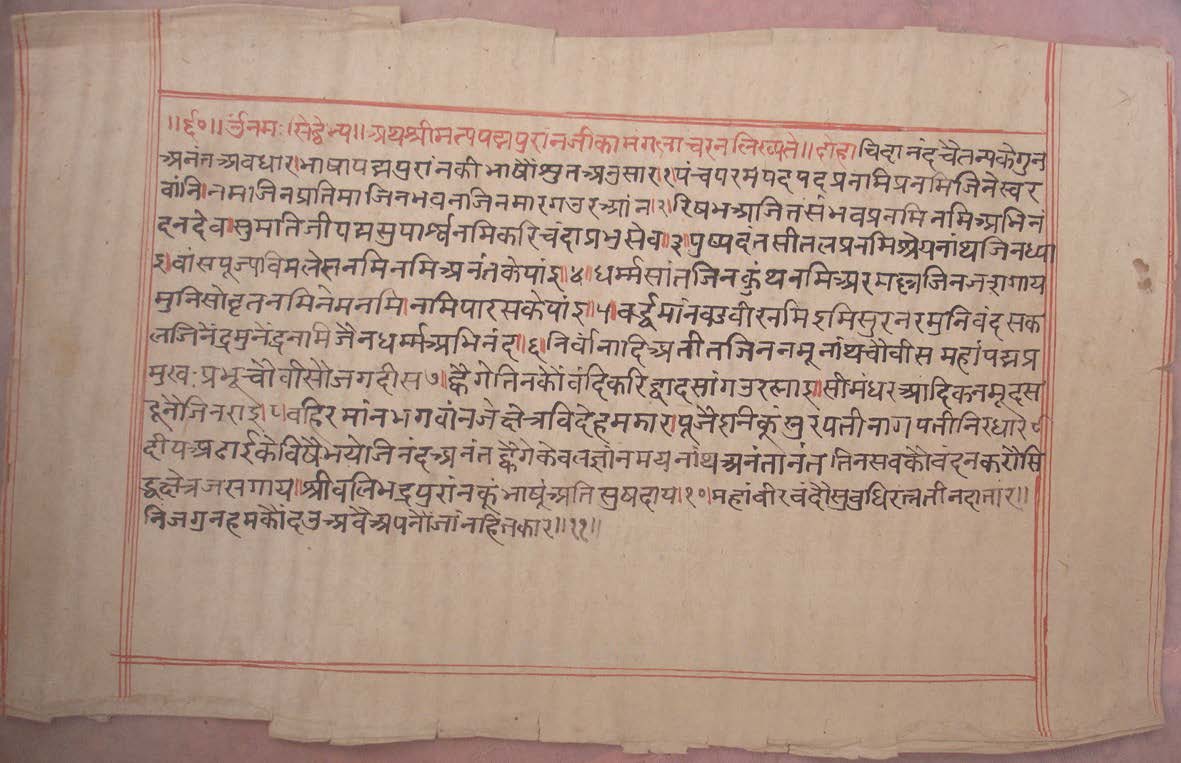 ॥ई॰॥ उंनमः।सिद्धेभ्य॥अथश्रीमत्पपद्मपुरांनजीकामंगलाचरनलिख्यते॥दोहा।चिदानंदचैतन्यकेगुन
अनंतअवधार।भाषापद्मपुरांनकीभाषौंश्रुतअनुसार।१।पंचपरमपदपदप्रनमिप्रनमिजिनेस्वर
वांनि।नमोजिनप्रतिमाजिनभवनजिनमारगउरआंन।२।रिषभअजितसंभवप्रनमिनमिअभिनं
दनदेव।सुमतिजीपद्मसुपार्श्वनमिकरिचंदाप्रभुसेव॥३॥पुष्पदंतसीतलप्रनमिश्रेयनांथजिनध्या
इ।वांसपूज्यविमलेसनमिनमिअनंतकेपांइ॥४॥धर्म्मसांतजिनकुंथनमिअरमल्लजिनजशगाय
मुनिसोवृतनमिनेमनमि।नमिपारसकेपांइ।५।वर्द्धमांनवउवीरनमिइमिसुरनरमुनिवंदसक
लजिनेंद्रमुनेंद्रनमिजैनधर्म्मअभिनंद।६।निर्वांनादिअतीतजिननमूनांथचौवीसमहांपद्मप्र
मुखःप्रभूचौवीसौजगदीस७।ह्वैगेतिनकौंवंदिकरिद्वादसांगउरल्याइ।सीमंधरआदिकनमूदस
दूनेजिनराइ।८।वहिरमांनभगवांनजेक्षेत्रविदेहमझार।पूजैशनिकूंसुरपतीनागपतीनिरधार९
दीपअढाईकैविषैभयेजिनंदअनंतह्वैगेकेवलज्ञांनमयनांथअनंतानंत।तिनसवकौवंदनकरौसि
द्धक्षेत्रजसगाय।श्रीवलिभद्रपुरांनकूंभाषूंअतिसुषदाय।१०।महांवीरवंदौसुवुधिरत्नतीनदातार॥
निजगुनहमकौंदउअवैअपनौंजांनहितकार॥११॥